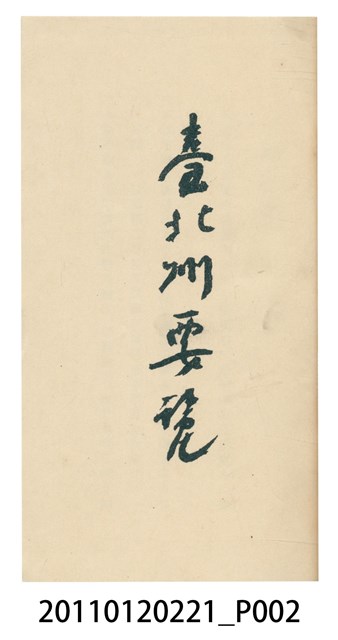 臺北州要覽
20110120221_P002